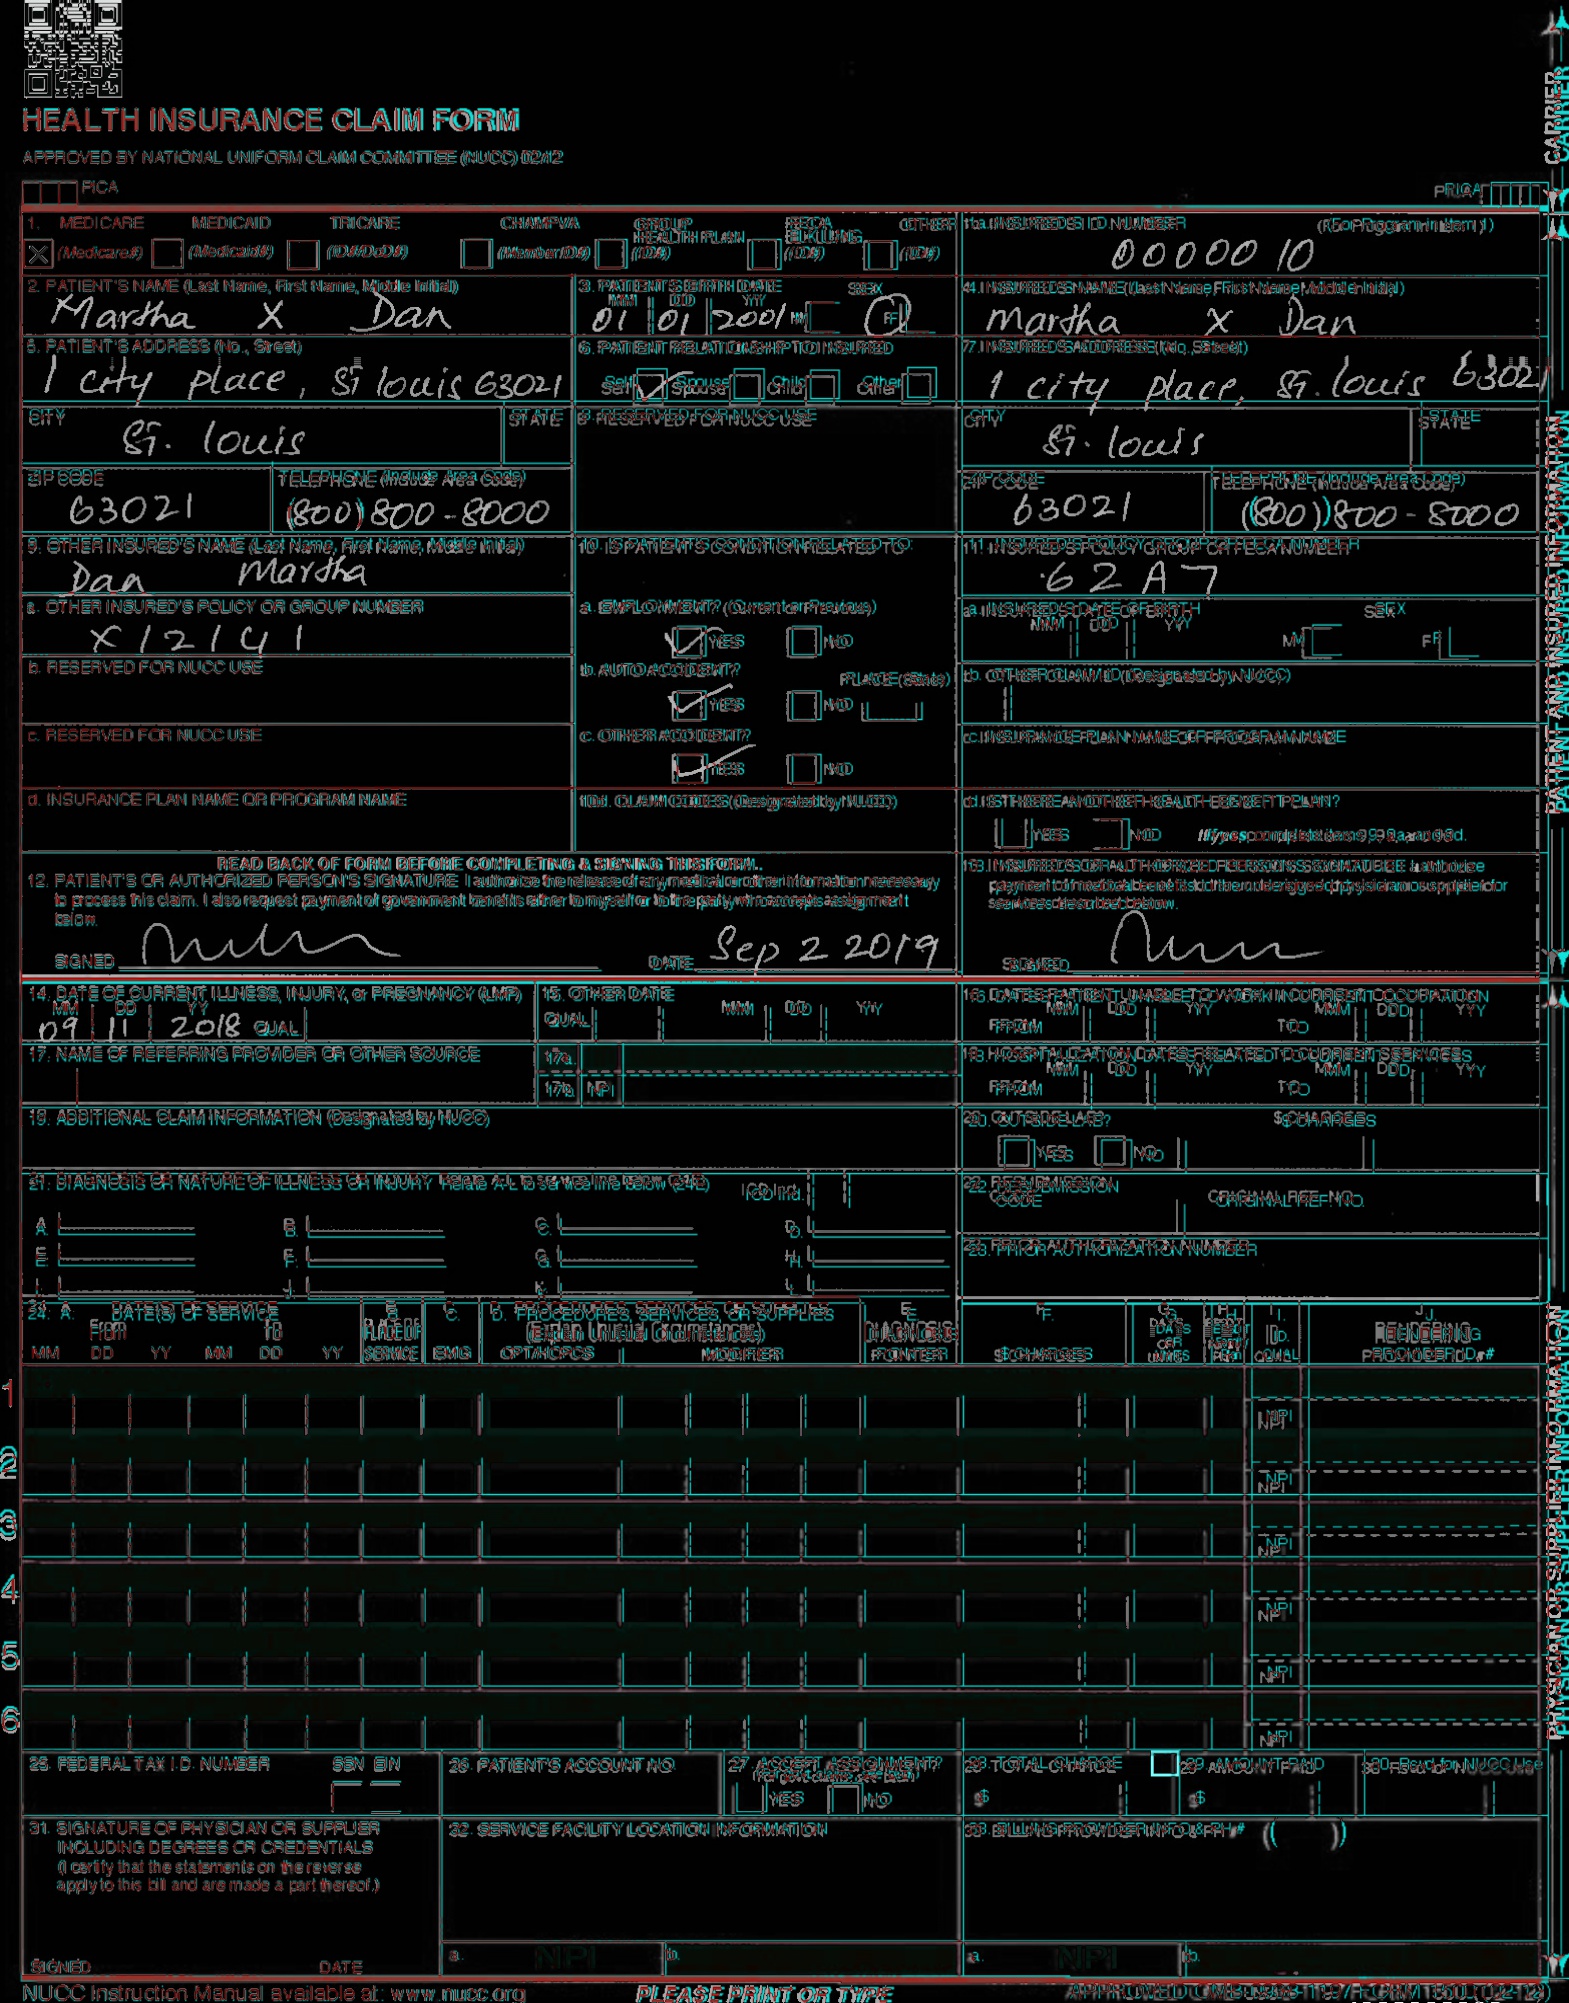 HEALTH INSURANCE CLAIM FORM
APPROVED BY NATIONAL UNIFORM CLAIM COMMITTEE (NUCC) 02/12
PICA
PICA
CARRIER
1. MEDICARE MEDICAID TRICARE CHAMPVA GROUP HEALTH PLAN FECA BLK LUNG OTHER
X (Medicare#) (Medicaid#) (ID#/DoD#) (Member ID#) (ID#) (ID#) (ID#)
1a. INSURED'S I.D. NUMBER (For Program in Item 1)
0000010
2. PATIENT'S NAME (Last Name, First Name, Middle Initial)
Martha X Dan
3. PATIENT'S BIRTH DATE SEX
MM DD YY
01 01 2001 M F
4. INSURED'S NAME (Last Name, First Name, Middle Initial)
Martha X Dan
5. PATIENT'S ADDRESS (No., Street)
1 city place, St louis 63021
6. PATIENT RELATIONSHIP TO INSURED
Self Spouse Child Other
7. INSURED'S ADDRESS (No., Street)
1 city place, St. louis 63021
CITY STATE
St. louis
8. RESERVED FOR NUCC USE
CITY STATE
St. louis
ZIP CODE TELEPHONE (Include Area Code)
63021 (800) 800-8000
ZIP CODE TELEPHONE (Include Area Code)
63021 (800) 800-8000
9. OTHER INSURED'S NAME (Last Name, First Name, Middle Initial)
Dan Martha
10. IS PATIENT'S CONDITION RELATED TO:
11. INSURED'S POLICY GROUP OR FECA NUMBER
62A7
a. OTHER INSURED'S POLICY OR GROUP NUMBER
X12141
a. EMPLOYMENT? (Current or Previous)
YES NO
a. INSURED'S DATE OF BIRTH SEX
MM DD YY M F
b. RESERVED FOR NUCC USE
b. AUTO ACCIDENT? PLACE (State)
YES NO
b. OTHER CLAIM ID (Designated by NUCC)
c. RESERVED FOR NUCC USE
c. OTHER ACCIDENT?
YES NO
c. INSURANCE PLAN NAME OR PROGRAM NAME
d. INSURANCE PLAN NAME OR PROGRAM NAME
10d. CLAIM CODES (Designated by NUCC)
d. IS THERE ANOTHER HEALTH BENEFIT PLAN?
YES NO If yes, complete items 9, 9a, and 9d.
READ BACK OF FORM BEFORE COMPLETING & SIGNING THIS FORM.
12. PATIENT'S OR AUTHORIZED PERSON'S SIGNATURE I authorize the release of any medical or other information necessary
to process this claim. I also request payment of government benefits either to myself or to the party who accepts assignment
below.
SIGNED DATE Sep 2 2019
13. INSURED'S OR AUTHORIZED PERSON'S SIGNATURE I authorize
payment of medical benefits to the undersigned physician or supplier for
services described below.
SIGNED
PATIENT AND INSURED INFORMATION
14. DATE OF CURRENT ILLNESS, INJURY, or PREGNANCY (LMP)
MM DD YY
09 11 2018 QUAL.
15. OTHER DATE
QUAL. MM DD YY
16. DATES PATIENT UNABLE TO WORK IN CURRENT OCCUPATION
MM DD YY MM DD YY
FROM TO
17. NAME OF REFERRING PROVIDER OR OTHER SOURCE
17a.
17b. NPI
18. HOSPITALIZATION DATES RELATED TO CURRENT SERVICES
MM DD YY MM DD YY
FROM TO
19. ADDITIONAL CLAIM INFORMATION (Designated by NUCC)
20. OUTSIDE LAB? $ CHARGES
YES NO
21. DIAGNOSIS OR NATURE OF ILLNESS OR INJURY Relate A-L to service line below (24E) ICD Ind.
A. B. C. D.
E. F. G. H.
I. J. K. L.
22. RESUBMISSION CODE ORIGINAL REF. NO.
23. PRIOR AUTHORIZATION NUMBER
24. A. DATE(S) OF SERVICE
From To
MM DD YY MM DD YY
B. PLACE OF SERVICE
C. EMG
D. PROCEDURES, SERVICES, OR SUPPLIES
(Explain Unusual Circumstances)
CPT/HCPCS MODIFIER
E. DIAGNOSIS POINTER
F. $ CHARGES
G. DAYS OR UNITS
H. EPSDT Family Plan
I. ID. QUAL.
J. RENDERING PROVIDER ID. #
1 NPI
2 NPI
3 NPI
4 NPI
5 NPI
6 NPI
PHYSICIAN OR SUPPLIER INFORMATION
25. FEDERAL TAX I.D. NUMBER SSN EIN
26. PATIENT'S ACCOUNT NO.
27. ACCEPT ASSIGNMENT?
YES NO
28. TOTAL CHARGE
$
29. AMOUNT PAID
$
30. Rsvd for NUCC Use
31. SIGNATURE OF PHYSICIAN OR SUPPLIER
INCLUDING DEGREES OR CREDENTIALS
(I certify that the statements on the reverse
apply to this bill and are made a part thereof.)
SIGNED DATE
32. SERVICE FACILITY LOCATION INFORMATION
a. NPI b.
33. BILLING PROVIDER INFO & PH # ( )
a. NPI b.
NUCC Instruction Manual available at: www.nucc.org
PLEASE PRINT OR TYPE
APPROVED OMB-0938-1197 FORM 1500 (02-12)